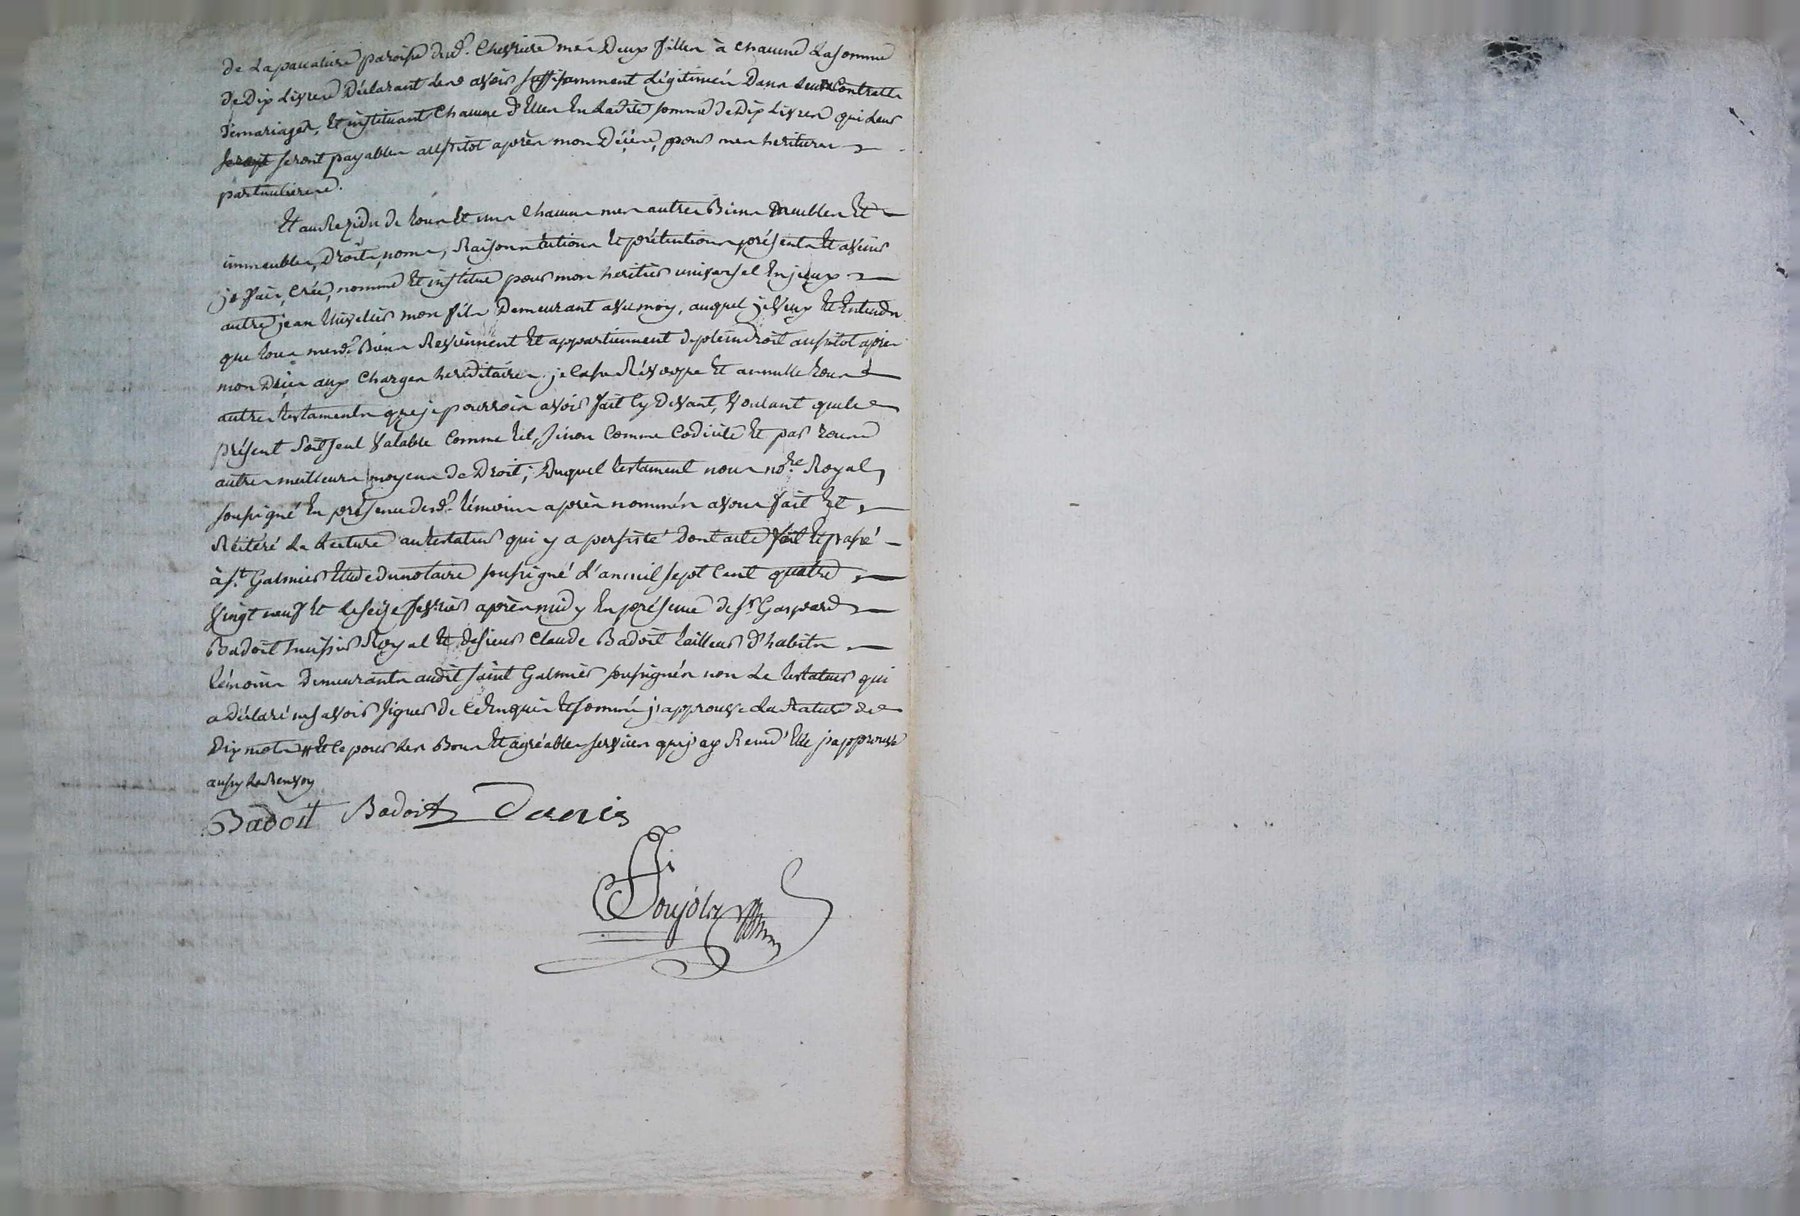 de Lapacaliere paroisse dud. Chevriere mes Deux filles à chacune La somme
de Dix Livres Déclarant Les avoir suffisamment Légitimées Dans Leurs Contratts
de mariages, Et instituant Chacune d'Elles En Ladite somme de Dix Livres qui Leur
seront payables aussitot après mon Décès, pour mes heritieres
particulieres.
Et au Rezidu de tous Et uns Chacuns mes autres Biens meubles Et
immeubles, Droits, noms, Raisons actions Et prétentions présents Et avenir
je fais, Crée, nomme Et institue pour mon heritier universel En jceux
autre jean mon fils Demeurant avec moy, auquel je Veux Et Entends
que tous mesd. Biens Reviennent Et appartiennent de plein droit aussitot après
mon Décès aux Charges héréditaires. je Casse Révoque Et annulle tous
autres testaments que je pourrois avoir fait Cy devant, Voulant que le
présent soit seul Valable Comme tel, sinon Comme Codicile Et par tous
autres meilleurs moyens de Droit; Duquel testament nous nore. Royal
soussigné En présence desd. témoins après nommés avons fait Et
Réitéré La Lecture au testateur qui y a persisté Dont acte fait Et passé
à St. Galmier Etude du notaire soussigné L'an mil sept Cent quatre
Vingt neuf Et Le seize fevrier après midy En présence de Sr. Gaspard
Badoit huissier Royal Et de sieur Claude Badoit tailleur d'habits
témoins Demeurants audit saint Galmier soussignés non Le testateur qui
a déclaré ne savoir signer de Ce Enquis Et sommé j'approuve La Rature de
Dix mots Et Ce pour Les Bons Et agréables services quej'ay Reçus d'Elle j'approuve
aussy Le Renvoy
Badoit Badoit